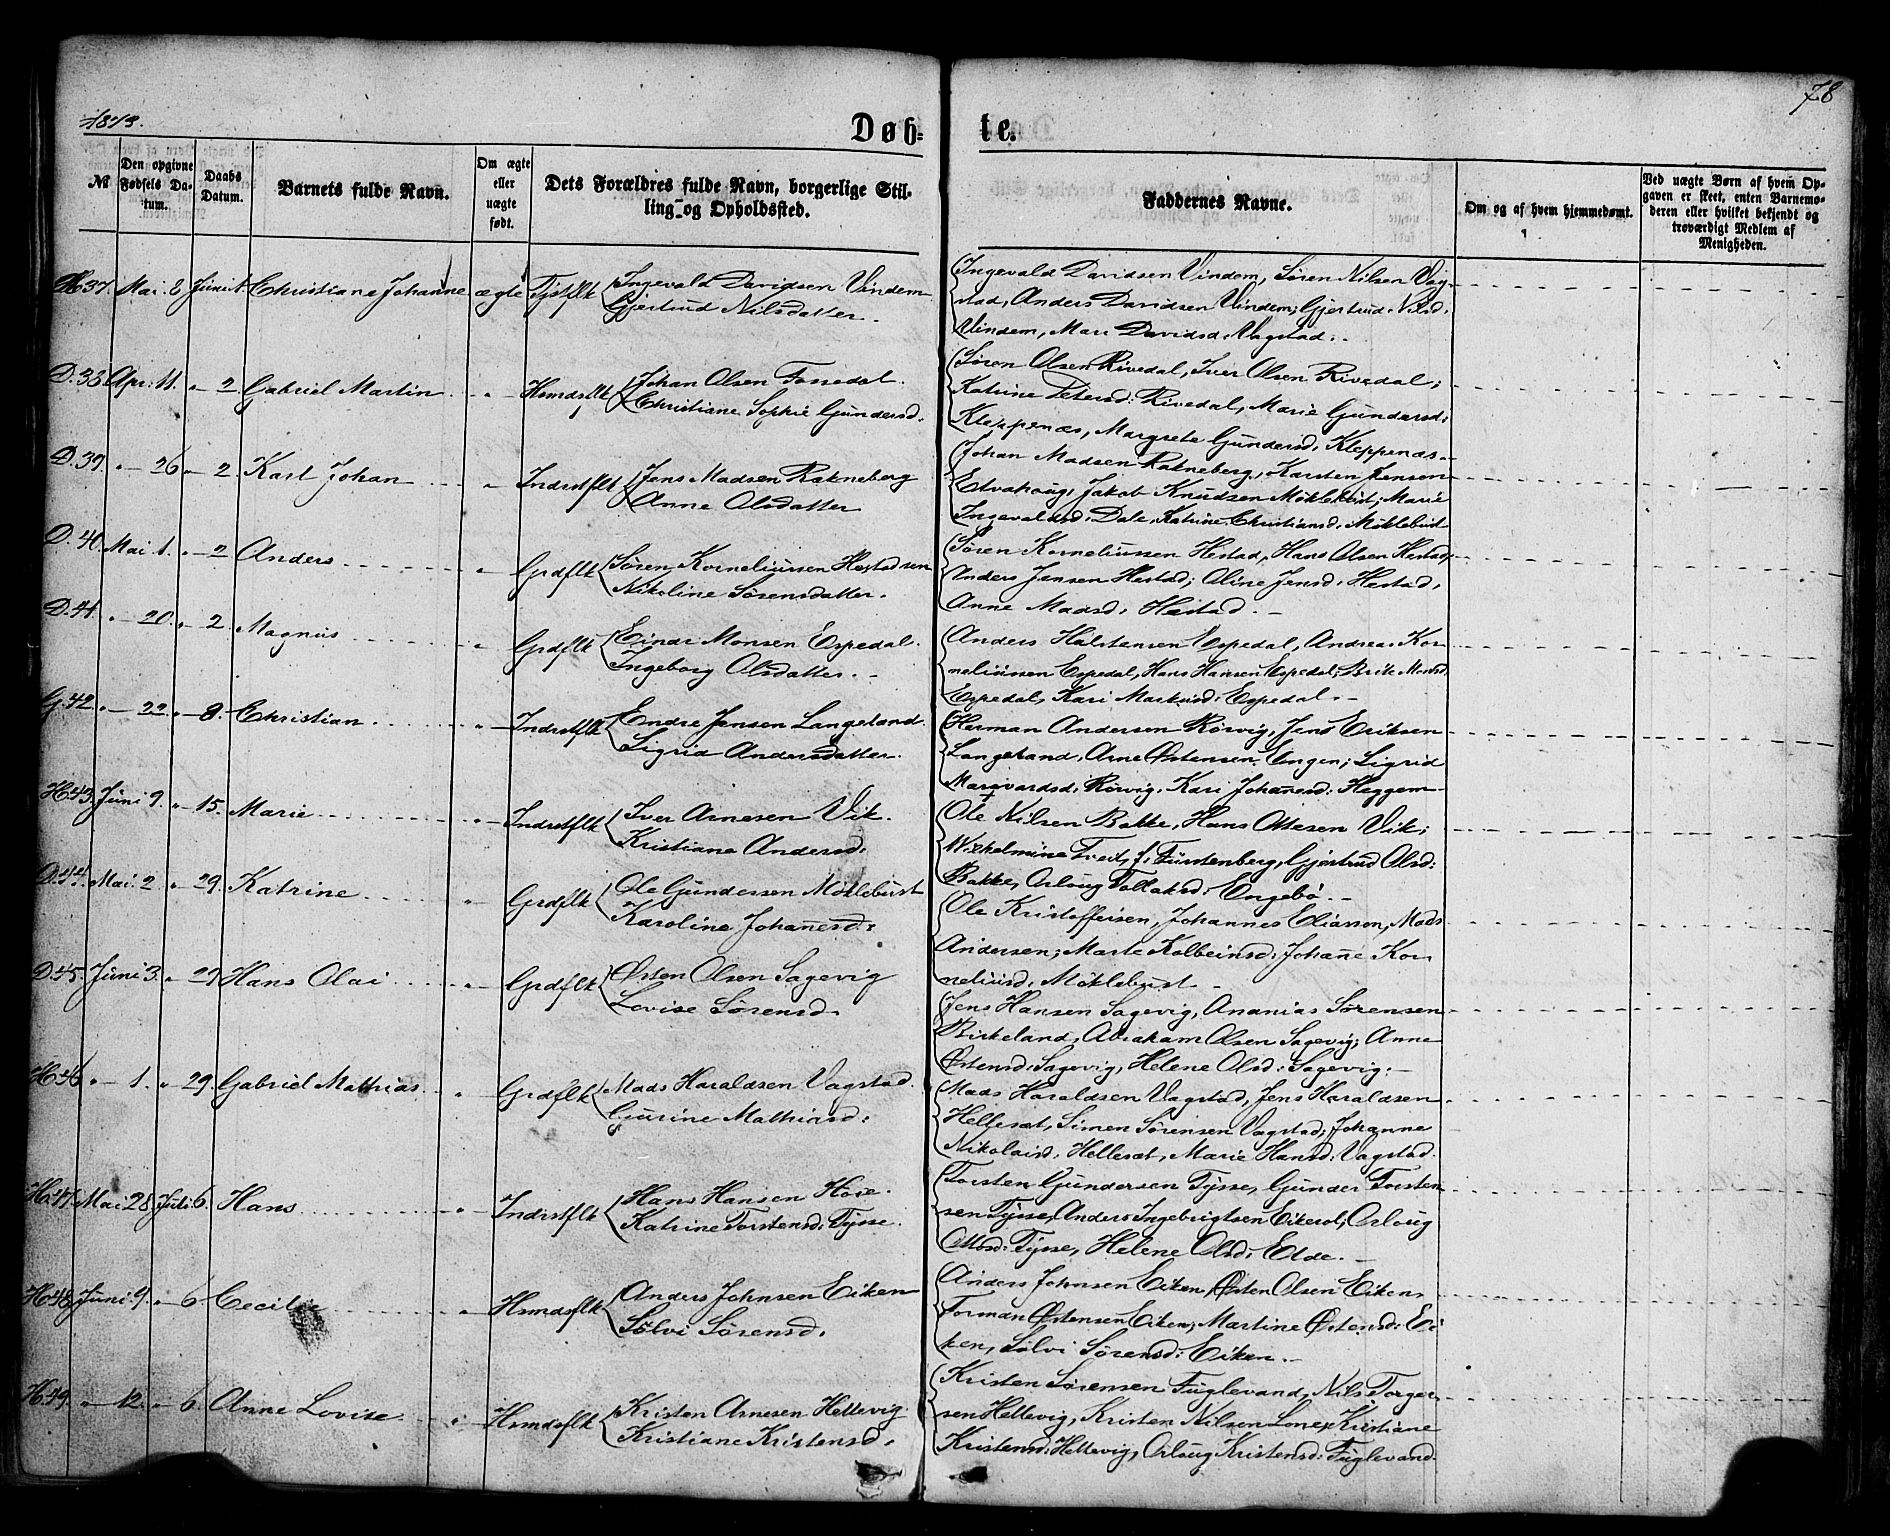 1873.
78
Døb-
te.
№
Den opgivne Fødsels Datum.
Daabs Datum.
Barnets fulde Navn.
Om ægte eller uægte født.
Dets Forældres fulde Navn, borgerlige Stilling og Opholdssted.
Faddernes Navne.
Om og af hvem hjemmedøbt.
Ved uægte Børn af hvem Opgaven er skeet, enten Barnemoderen eller hvilket bekjendt og troværdigt Medlem af Menigheden.
H.37. Mai. 8 Juni 1. Christiane Johanne ægte Tjstflk Ingevald Davidsen Vindem
Gjertrud Nilsdatter.
Ingevald Davidsen Vindem, Søren Nilsen Vag-
stad, Anders Davidsen Vindem; Gjertrud Nilsd.
Vindem, Mari Davidsd: Vagstad.
D.38. Apr. 11. " 2. Gabriel Martin " Hsmdsflk Johan Olsen Fossedal.
Christiane Sophie Gundersd.
Søren Olsen Rivedal, Iver Olsen Rivedal;
Katrine Petersd: Rivedal, Marie Gundersd:
Kleppenæs, Margrete Gundersd, Kleppenæs.
D.39. " 26 " 2. Karl Johan " Indrstflk Jens Madsen Rakneberg
Anne Olsdatter
Johan Madsen Rakneberg, Karsten Jensen
Etvahoug, Jakob Knudsen Møklebust; Marie
Ingevaldsd. Dale, Katrine Christiansd, Møklebust
D.40. Mai. 1. " 2 Anders " Grdflk Søren Korneliussen Hestad
Nikoline Sørensdatter.
Søren Korneliussen Hestad, Hans Olsen Hestad,
Anders Jensen Hestad; Oline Jensd. Hestad,
Anne Madsd. Hestad.
D.41. " 20. " 2. Magnus " Grdflk Einar Monsen Espedal.
Ingeborg Olsdatter.
Anders Halstensen Espedal, Andreas Kor-
neliussen Espedal, Hans Hansen Espedal; Brite Monsd.
Espedal, Kari Markusd. Espedal.
G.42 " 22. " 8. Christian " Indrstflk Endre Jensen Langeland.
Sigrid Andersdatter
Herman Andersen Rørvig, Jens Eriksen
Langeland, Arne Østensen Engen; Sigrid
Marqvardsd: Rørvig, Kari Johansd: Heggem
H.43. Juni 9. " 15. Marie " Indrstflk Iver Arnesen Vik.
Kristiane Andersd:
Ole Nilsen Bakke, Hans Ottesen Vik;
Wilhelmine Tveit, f. Fürstenberg, Gjertrud Olsd:
Bakke, Orloug Tollaksd: Engebø.
D.44. Mai. 2 " 29. Katrine " Grdflk Ole Gundersen Møklebust
Karoline Johanesd:
Ole Kristoffersen, Johannes Eliassen, Mads
Andersen; Marte Kolbeinsd: Johane Kor-
neliusd. Møklebust
D.45. Juni 3. " 29 Hans Olai " Grdflk Østen Olsen Sagevig
Lovise Sørensd.
Jens Hansen Sagevig, Ananias Sørensen
Birkeland, Abraham Olsen Sagevig; Anne
Østensd: Sagevig, Helene Olsd: Sagevig.
H.46 " 1. " 29. Gabriel Mathias " Grdflk Mads Haraldsen Vagstad.
Gurine Mathiasd:
Mads Haraldsen Vagstad, Jens Haraldsen
Hellesæt, Simen Sørensen Vagstad; Johanne
Nikolaisd: Hellesæt, Marie Hansd: Vagstad.
H.47. Mai. 28. Juli 6. Hans " Indrstflk Hans Hansen Hove.
Katrine Torstensd: Tysse.
Torsten Gundersen Tysse, Gunder Torsten-
sen Tysse, Anders Ingebrigtsen Eikerol; Orloug
Ottosd: Tysse, Helene Olsd: Elde.
H.48. Juni 9. " 6 Cecilie " Hsmdsflk Anders Johnsen Eiken
Sølvi Sørensd.
Anders Johnsen Eiken, Østen Olsen Eiken,
Torman Østensen Eiken; Martine Østensd: Ei-
ken, Sølvi Sørensd: Eiken.
H.49. " 12. " 6. Anne Lovise " Hsmdsflk Kristen Arnesen Hellevig
Kristiane Kristensd.
Kristen Sørensen Fuglevand, Nils Torger-
sen Hellevig, Kristen Nilsen Lone; Kristiane
Kristensd: Hellevig, Orloug Kristensd: Fuglevand.